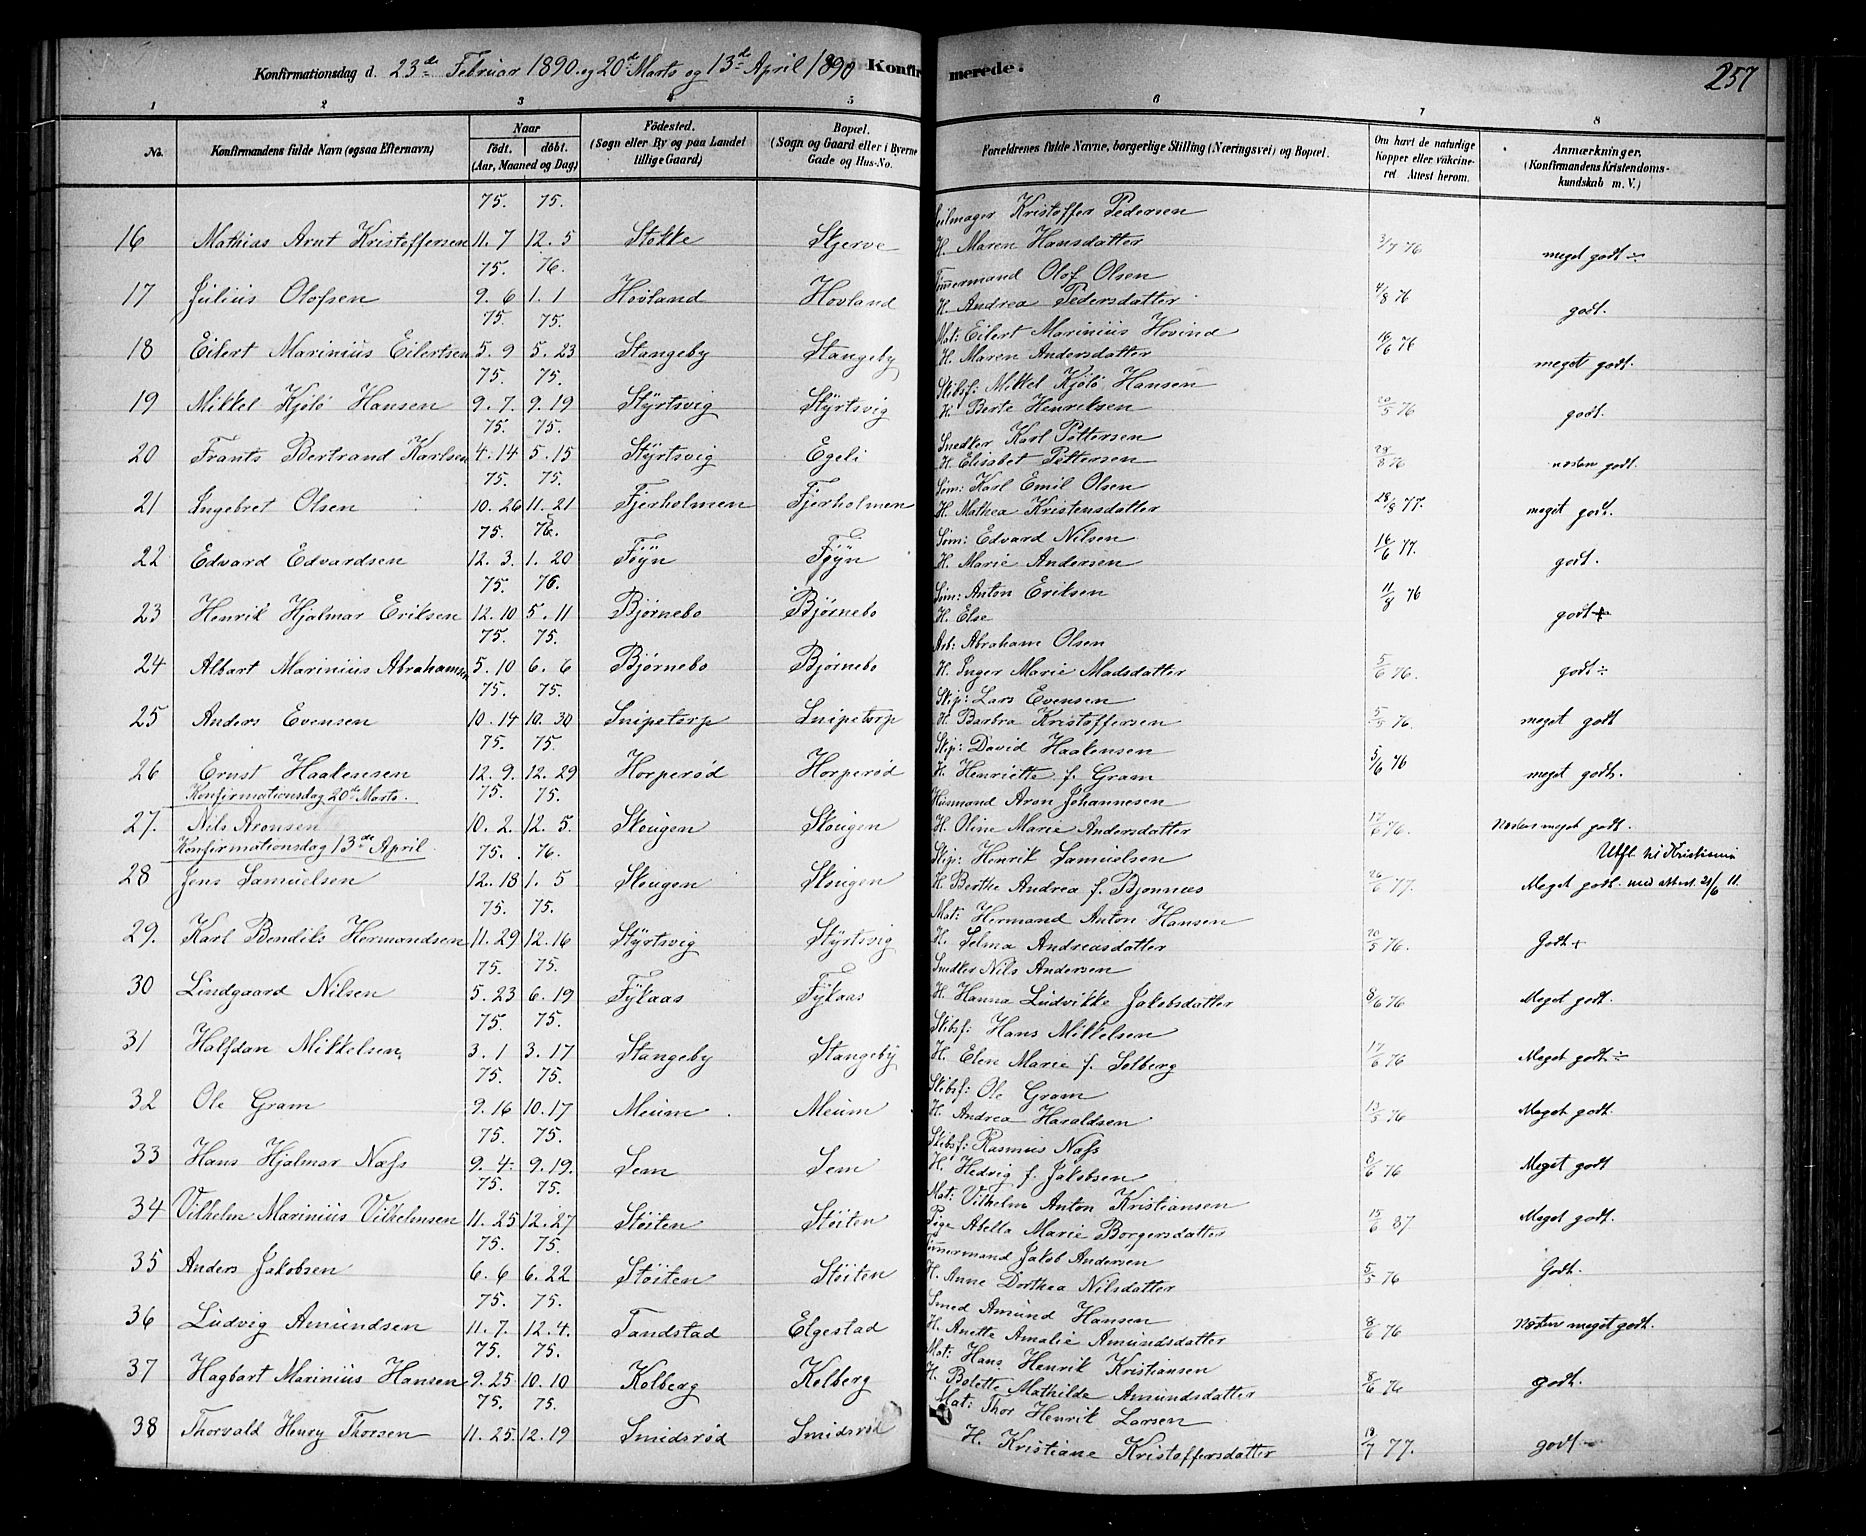 Konfirmationsdag d. 23de Februar 1890. og 20de Marts og 13de April 1890 Konfirmerede. 257
1 2 3 4 5 6 7 8
No. Konfirmandens fulde Navn (ogsaa Efternavn) Naar født. døbt. (Aar, Maaned og Dag) Fødested. (Sogn eller By og paa Landet tillige Gaard) Bopæl. (Sogn og Gaard eller i Byerne Gade og Hus-No. Forældrenes fulde Navne, borgerlige Stilling (Næringsvei) og Bopæl. Om havt de naturlige Kopper eller vakcineret Attest herom. Anmærkninger, (Konfirmandens Kristendomskundskab m. V.)
75. 75. Seilmager Kristoffer Pedersen
16 Mathias Arnt Kristoffersen 11. 7 12. 5 Stokke Skjerve H. Maren Hansdatter 3/7 76 meget godt ÷
75. 76. Tømmermand Olof Olsen
17 Julius Olofsen 9. 6 1. 1 Hovland Hovland H. Andrea Pedersdatter 4/8 76 godt.
75. 75. Mat: Eilert Marinius Hovind
18 Eilert Marinius Eilertsen 5. 9 5. 23 Stangeby Stangeby H. Maren Andersdatter 16/6 76 meget godt.
75. 75. Skibsf: Mikkel Kjölö Hansen
19 Mikkel Kjölö Hansen 9. 7. 9. 19 Styrtsvig Styrtsvig H. Berte Henriksen 20/5 76 godt.
75. 75. Snedker Karl Pettersen
20 Frants Bertrand Karlsen 4. 14 5. 15 Styrtsvig Egeli H. Elisabet Pettersen 28/8 76 næsten godt.
75. 75. Søm: Karl Emil Olsen
21 Ingebret Olsen 10. 26 11. 21 Fjerholmen Fjerholmen H. Mathea Kristensdatter 28/8 77. meget godt.
75. 76. Søm: Edvard Nilsen
22 Edvard Edvardsen 12. 3. 1. 20 Føyn Føyn H. Marie Andersen 16/6 77. godt.
75. 76. Søm: Anton Eriksen
23 Henrik Hjalmar Eriksen 12. 10 5. 11 Bjørnebo Bjørnebo H. Else 11/8 76 godt +
75. 75. Arb: Abraham Olsen
24 Albart Marinius Abrahamsen 5. 10 6. 6 Bjørnebo Bjørnebo H. Inger Marie Madsdatter 5/6 76. godt ÷
75. 75. Skip: Lars Evensen
25 Anders Evensen 10. 14 10. 30 Snipetorp Snipetorp H. Barbra Kristoffersen 5/5 76. meget godt
75. 75. Skip: David Haakensen
26 Ernst Haakensen 12. 9. 12. 29 Horperød Horperød H. Henriette f. Gram 5/6 76 meget godt.
Konfirmationsdag 20de Marts. 75. 75. Husmand Aron Johannesen
27. Nils Aronsen 10. 2. 12. 5. Skougen Skougen H. Oline Marie Andersdatter 17/6 76. Næsten meget godt.
Konfirmationsdag 13de April 75. 76. Skip: Henrik Samuelsen Utfl. til Kristiania
28 Jens Samuelsen 12. 18 1. 5 Skougen Skougen H. Berthe Andrea f. Bjønnæs 26/6 77. Meget godt. med attest. 21/6 11.
75. 75. Mat: Hermand Anton Hansen
29. Karl Bendiks Hermandsen 11. 29 12. 16 Styrtsvig Styrtsvig H. Selma Andreasdatter 20/5 76. Godt +
75. 75. Snedker Nils Andersen
30 Lindgaard Nilsen 5. 23 6. 19 Fykaas Fykaas H. Hanna Ludvikke Jakobsdatter 8/6 76 Meget godt.
75. 75. Skibsf: Hans Mikkelsen
31 Halfdan Mikkelsen 3. 1 3. 17 Stangeby Stangeby H. Elen Marie f. Solberg 17/6 76 Meget godt ÷
75. 75. Skibsf: Ole Gram
32 Ole Gram 9. 16 10. 17 Meum Meum H. Andrea Haraldsen 13/5 76 Meget godt.
75. 75. Skibsf: Rasmus Næss
33 Hans Hjalmar Næss 9. 4. 9. 19. Sem Sem H. Hedvig f. Jakobsen 8/6 76 Meget godt
75. 75. Mat: Vilhelm Anton Kristiansen
34 Vilhelm Marinius Vilhelmsen 11. 25 12. 27 Støiten Støiten Pige Abella Marie Borgersdatter 15/6 87 Meget godt.
75. 75. Tømmermand Jakob Andersen
35 Anders Jakobsen 6. 6 6. 22 Støiten Støiten H. Anne Dorthea Nilsdatter 5/5 76 Godt.
75. 75. Smed Amund Hansen
36 Ludvig Amundsen 11. 7. 12. 4. Tandstad Elgestad H. Anette Amalie Amundsdatter 8/6 76 Næsten meget godt.
75. 75. Mat: Hans Henrik Kristiansen
37 Hagbart Marinius Hansen 9. 25 10. 10 Kolberg Kolberg H. Bolette Mathilde Amundsdatter 8/6 76 godt.
75. 75. Mat: Thor Henrik Larsen
38 Thorvald Henry Thorsen 11. 25. 12. 19 Smidsrød Smidsrød H. Kristiane Kristoffersdatter 19/7 77. godt -